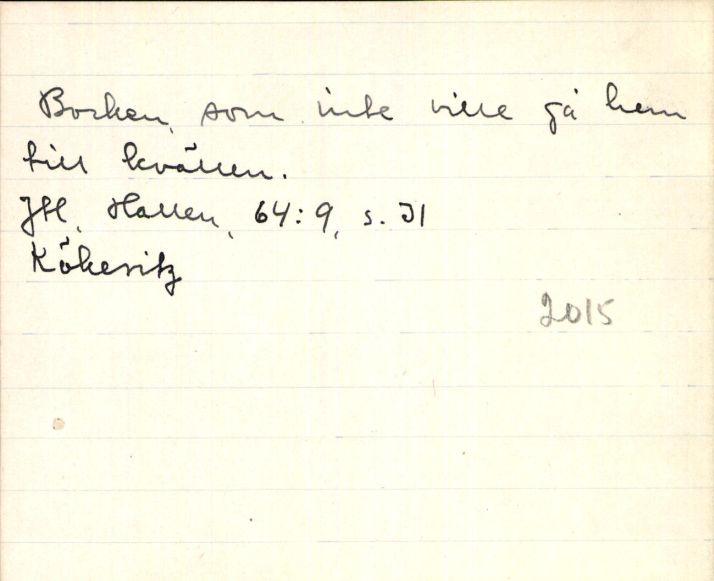 Bocken, som inte ville gå hem
till kvällen.
Jtl, Hallen, 64:9, s. 31
Kökeritz
2015